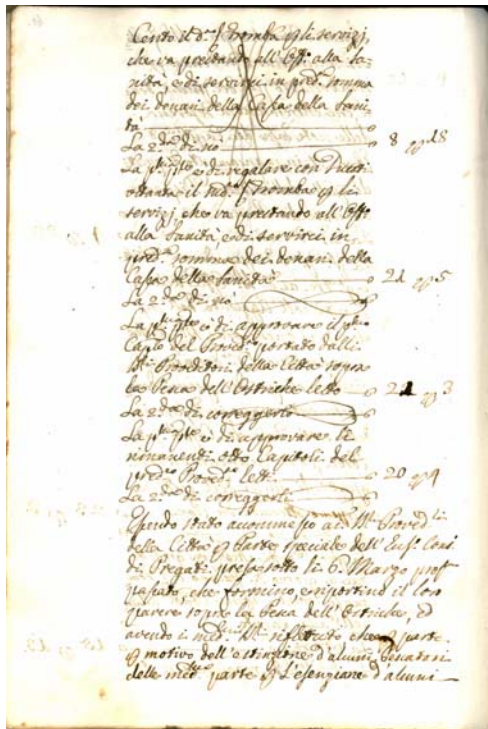 Cento il d.º S. Tromba p li servizj,
che va prestando all'Off.º alla Sa-
nità, e di servirsi in pred.ª somma
dei denari della Cassa della Sani-
tà
La 2.da di no 8
La p.ª p.te è di regalare con Ducati
ottanta il S. Tromba p li
servizj, che va prestando all'Off.º
alla Sanità, e di servirsi in
pred.ª somma dei denari della
Cassa della Sanità 21 5
La 2.da di no
La p.ª p.te è di approvare il p.mo
Cap.lo del Proved.to portato dalli
Proveditori della Città sopra
la Pesca dell'Ostriche letto 3
La 2.da di correggerlo
La p.ª p.te è di approvare li
rimanenti otto Capitoli del
pred.to Proved.to letti 20
La 2.da di correggerli
Essendo stato accommesso ai Proved.ri
della Città p Parte speciale dell' Cons.
di Pregati presa sotto li 6. Marzo
passato, che formino, e riportino il loro
parere sopra la Pesca dell'Ostriche, ed
avendo i med.mi riflettuto che p parte
p motivo dell'estinzione d'alcuni Senatori
delle parte p l'esenzione d'alcuni